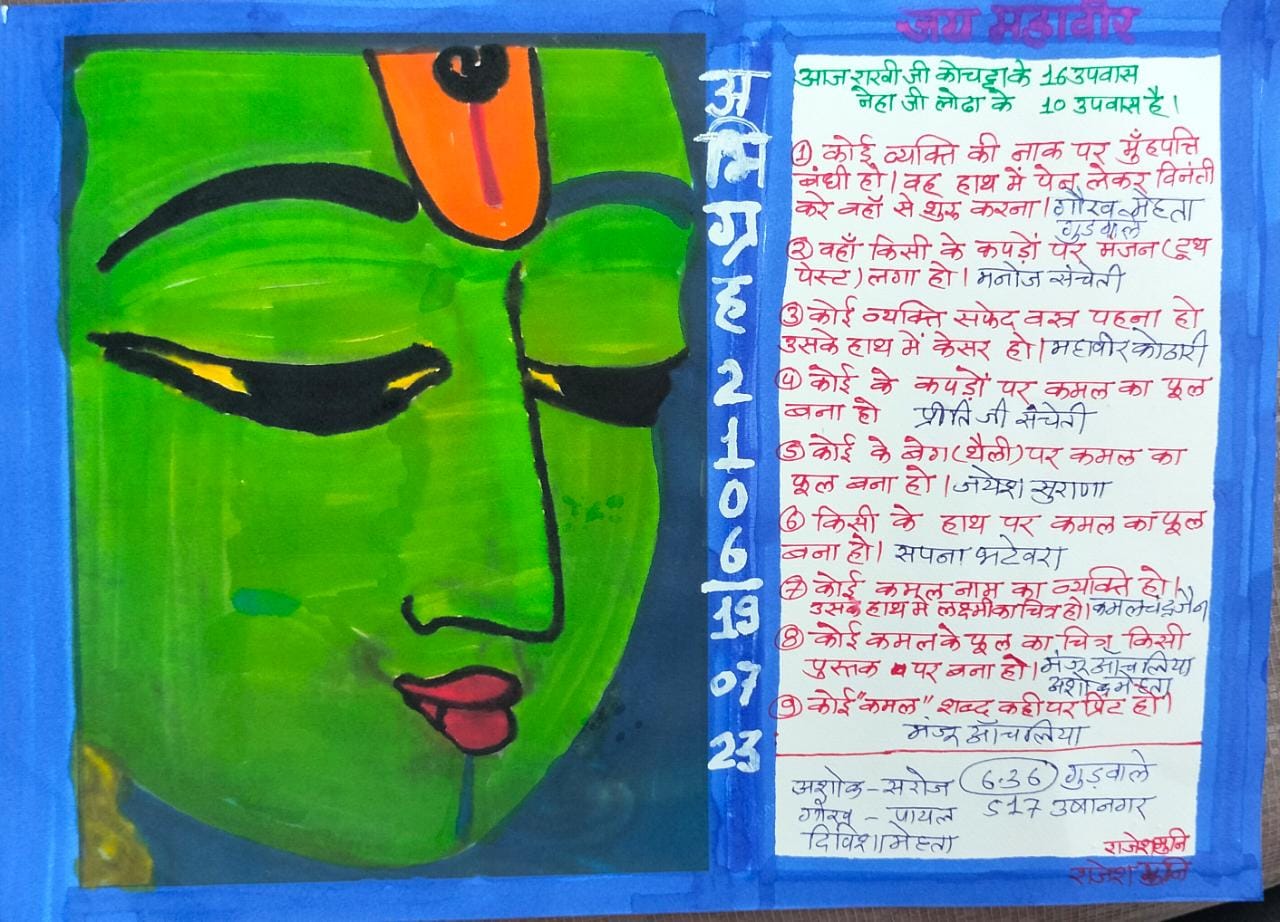 जय महावीर
अभिग्रह 2106/19 07 23
आज राखी जी कोचट्टा के 16 उपवास
नेहा जी लोढा के 10 उपवास है।
① कोई व्यक्ति की नाक पर मुँहपत्ति
बंधी हो। वह हाथ में पेन लेकर विनंती
करे वहाँ से शुरु करना। गौरव मेहता
गुडवाले
② वहाँ किसी के कपड़ों पर मंजन (टूथ
पेस्ट) लगा हो। मनोज संचेती
③ कोई व्यक्ति सफेद वस्त्र पहना हो
उसके हाथ में केसर हो। महावीर कोठारी
④ कोई के कपड़ों पर कमल का फूल
बना हो प्रीति जी संचेती
⑤ कोई के बेग (थैली) पर कमल का
फूल बना हो। जयेश सुराणा
⑥ किसी के हाथ पर कमल का फूल
बना हो। सपना भटेवरा
⑦ कोई कमल नाम का व्यक्ति हो।
उसके हाथ में लक्ष्मी का चित्र हो। कमलचंद जैन
⑧ कोई कमल के फूल का चित्र किसी
पुस्तक पर बना हो। मंजू आँचलिया
अशोक मेहता
⑨ कोई "कमल" शब्द कही पर प्रिंट हो।
मंजू आँचलिया
अशोक-सरोज 6.36 गुड़वाले
गौरव - पायल S 17 उषानगर
दिविशा मेहता
राजेशमुनि
राजेश मुनि